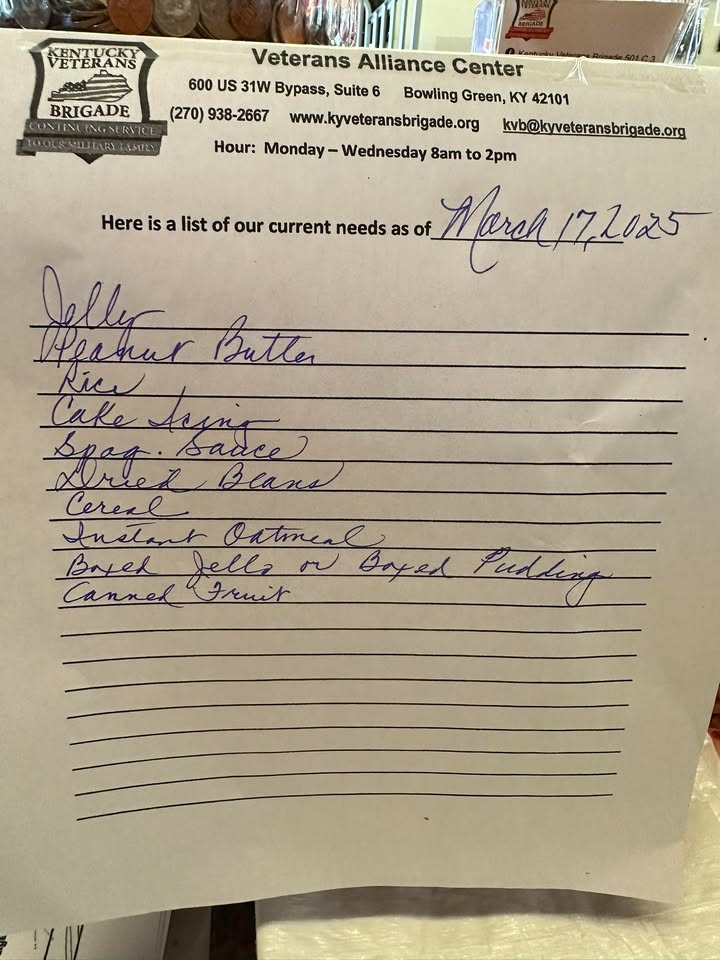 KENTUCKY
VETERANS
BRIGADE
CONTINUING SERVICE
TO OUR MILITARY FAMILY
Veterans Alliance Center
600 US 31W Bypass, Suite 6 Bowling Green, KY 42101
(270) 938-2667 www.kyveteransbrigade.org kvb@kyveteransbrigade.org
Hour: Monday – Wednesday 8am to 2pm
Here is a list of our current needs as of March 17, 2025
Jelly
Peanut Butter
Rice
Cake Icing
Spag. Sauce
Dried Beans
Cereal
Instant Oatmeal
Boxed Jello or Boxed Pudding
Canned Fruit
BRIGADE
Kentucky Veterans Brigade 501 C 3